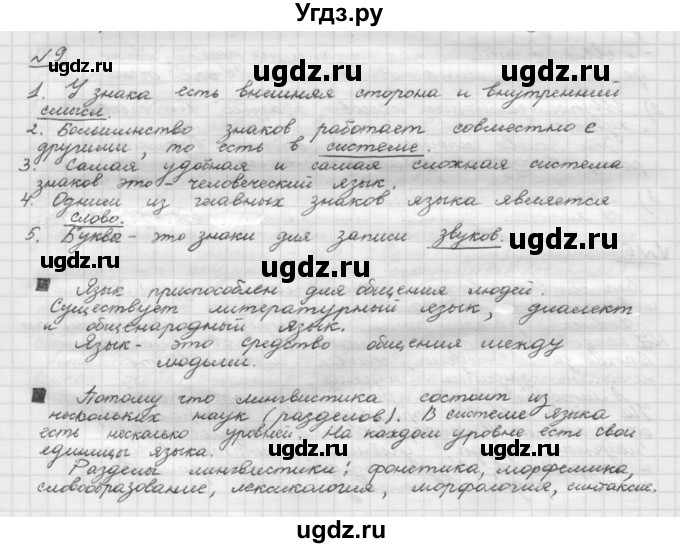 Угдз.ру
№9
1. У знака есть внешняя сторона и внутренний
смысл.
2. Большинство знаков работает совместно с
другими, то есть в системе.
3. Самая удобная и самая сложная система
знаков это - человеческий язык.
4. Одним из главных знаков языка является
слово.
5. Буква - это знаки для записи звуков.
Язык приспособлен для общения людей.
Существует литературный язык, диалект
и общенародный язык.
Язык - это средство общения между
людьми.
Потому что лингвистика состоит из
нескольких наук (разделов). В системе языка
есть несколько уровней. На каждом уровне есть свои
единицы языка.
Разделы лингвистики: фонетика, морфемика,
словообразование, лексикология, морфология, синтаксис.
ugdz.ru
ugdz.ru
ugdz.ru
ugdz.ru
ugdz.ru
ugdz.ru
ugdz.ru
ugdz.ru
ugdz.ru
ugdz.ru
ugdz.ru
ugdz.ru
ugdz.ru
Угдз.ру